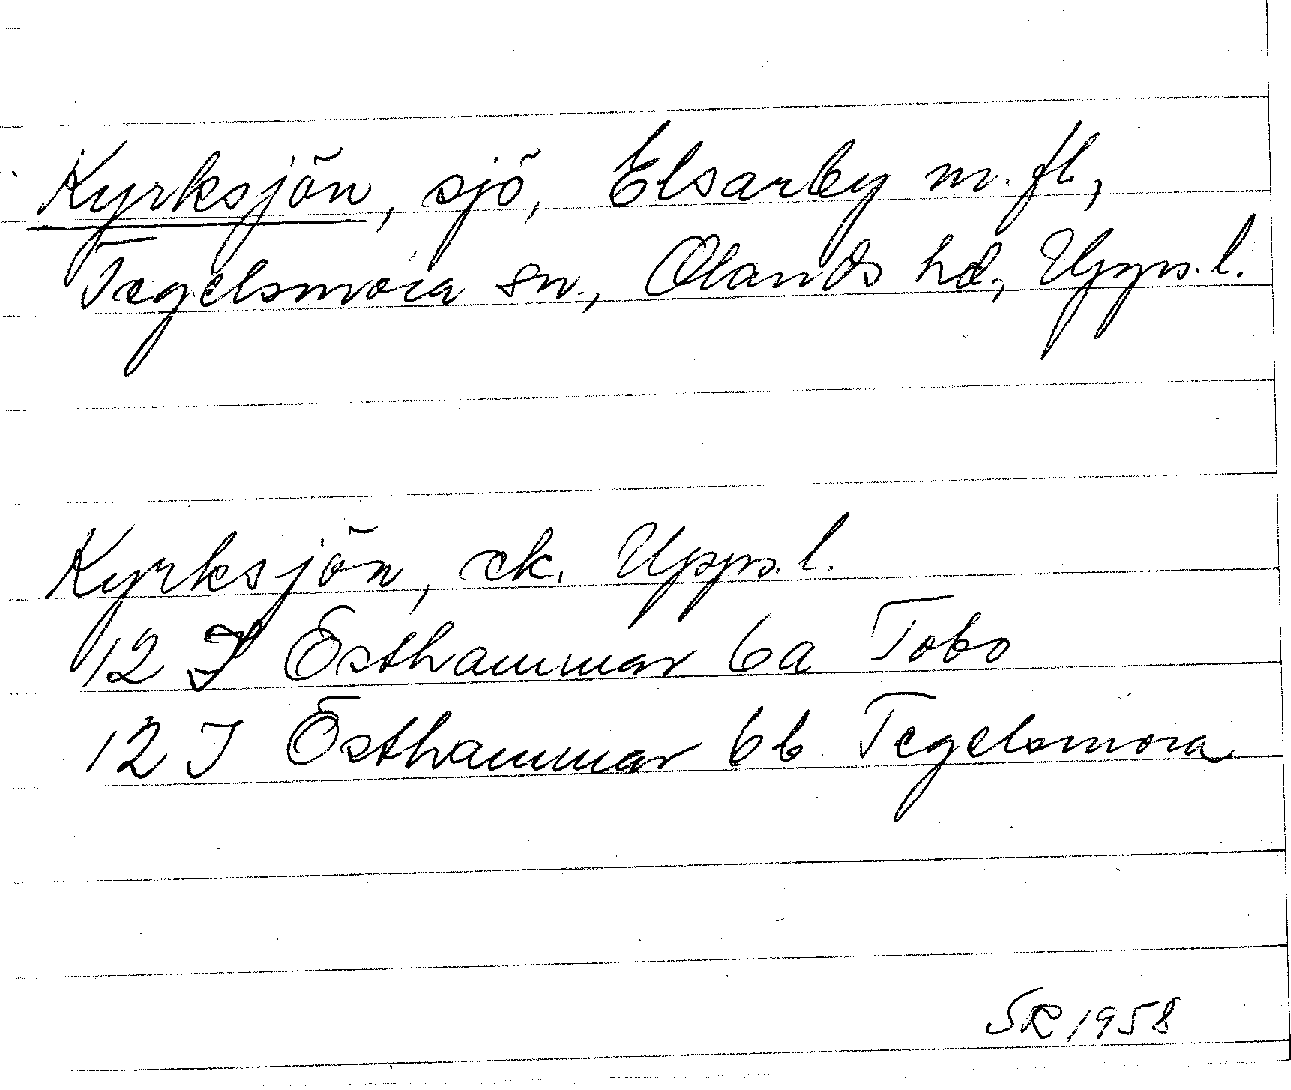 Kyrksjön, sjö, Elsarby m.fl,
Tegelsmora sn, Olands hd, Upps.l.
Kyrksjön, ek. Upps.l.
12 I Östhammar 6a Tobo
12 I Östhammar 6b Tegelsmora
SR 1958